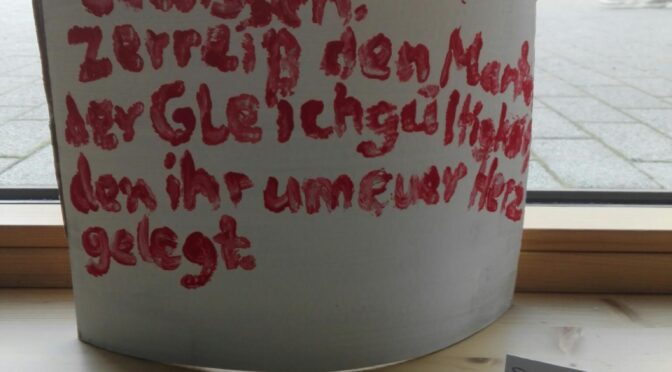 zerreiß den Mantel
der Gleichgültigkeit
den ihr um euer Herz
gelegt.